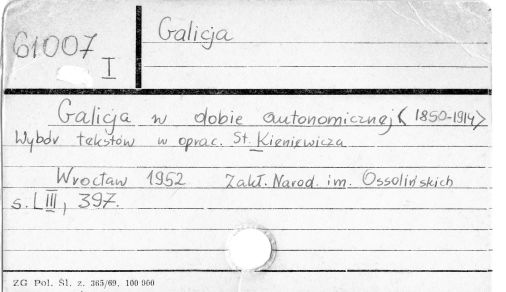 61007
I
Galicja
Galicja w dobie autonomicznej <1850-1914>
Wybór tekstów w oprac. St. Kieniewicza
Wrocław 1952 Zakł. Narod. im. Ossolińskich
s. LIII, 397.
ZG Pol. Śl. z. 365/69. 100 000